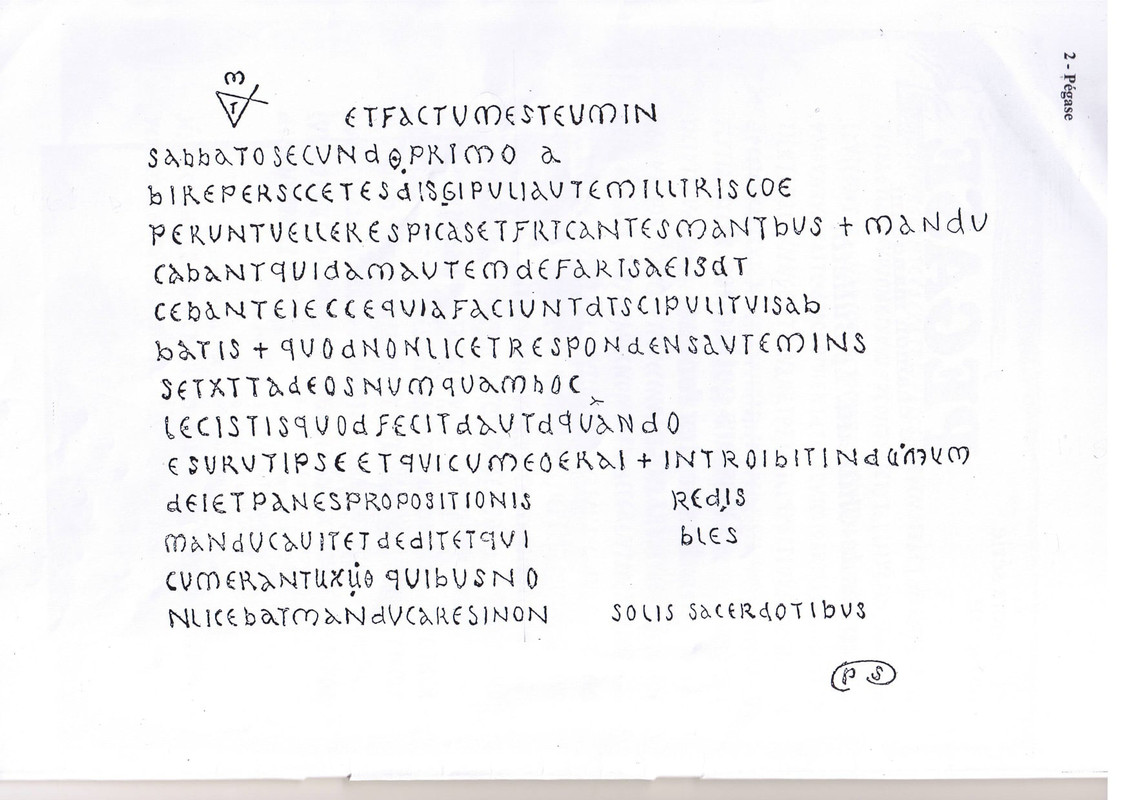 2 - Pégase
M
T
ETFACTUMESTEUMIN
SAbbATOSECUNdOPRIMO A
bIREPERSCCETESdISGIPULIAUTEMILLTRISCOE
PERUNTUELLERESPICASETFRTCANTESMANTbUS + MANdU
CAbANTQUIdAMAUTEMdEFARTSAEISdT
CEbANTEIECCEQUIAFACIUNTdTSCIPULITUISAb
bATIS + QUOdNONLICETRESPONdENSAUTEMINS
SETXTTAdEOSNUMQUAMhOC
LECISTISQUOdFECITdAUTdQUANdO
ESURUTIPSEETQUICUMEOERAI + INTROIbITINdUMUM
dEIETPANESPROPOSITIONIS REdIS
MANdUCAUITETdEdITETQUI bLES
CUMERANTUXUO QUIbUSNO
NLICEbATMANdUCARESINON SOLIS SACERdOTIbUS
PS